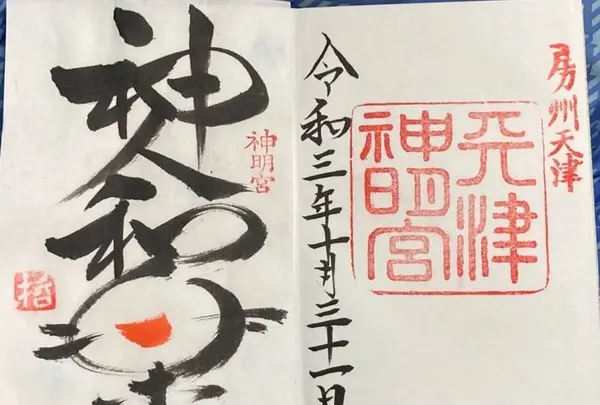 房州天津
天津
神明宮
令和三年十月三十一日
神明宮
神人和